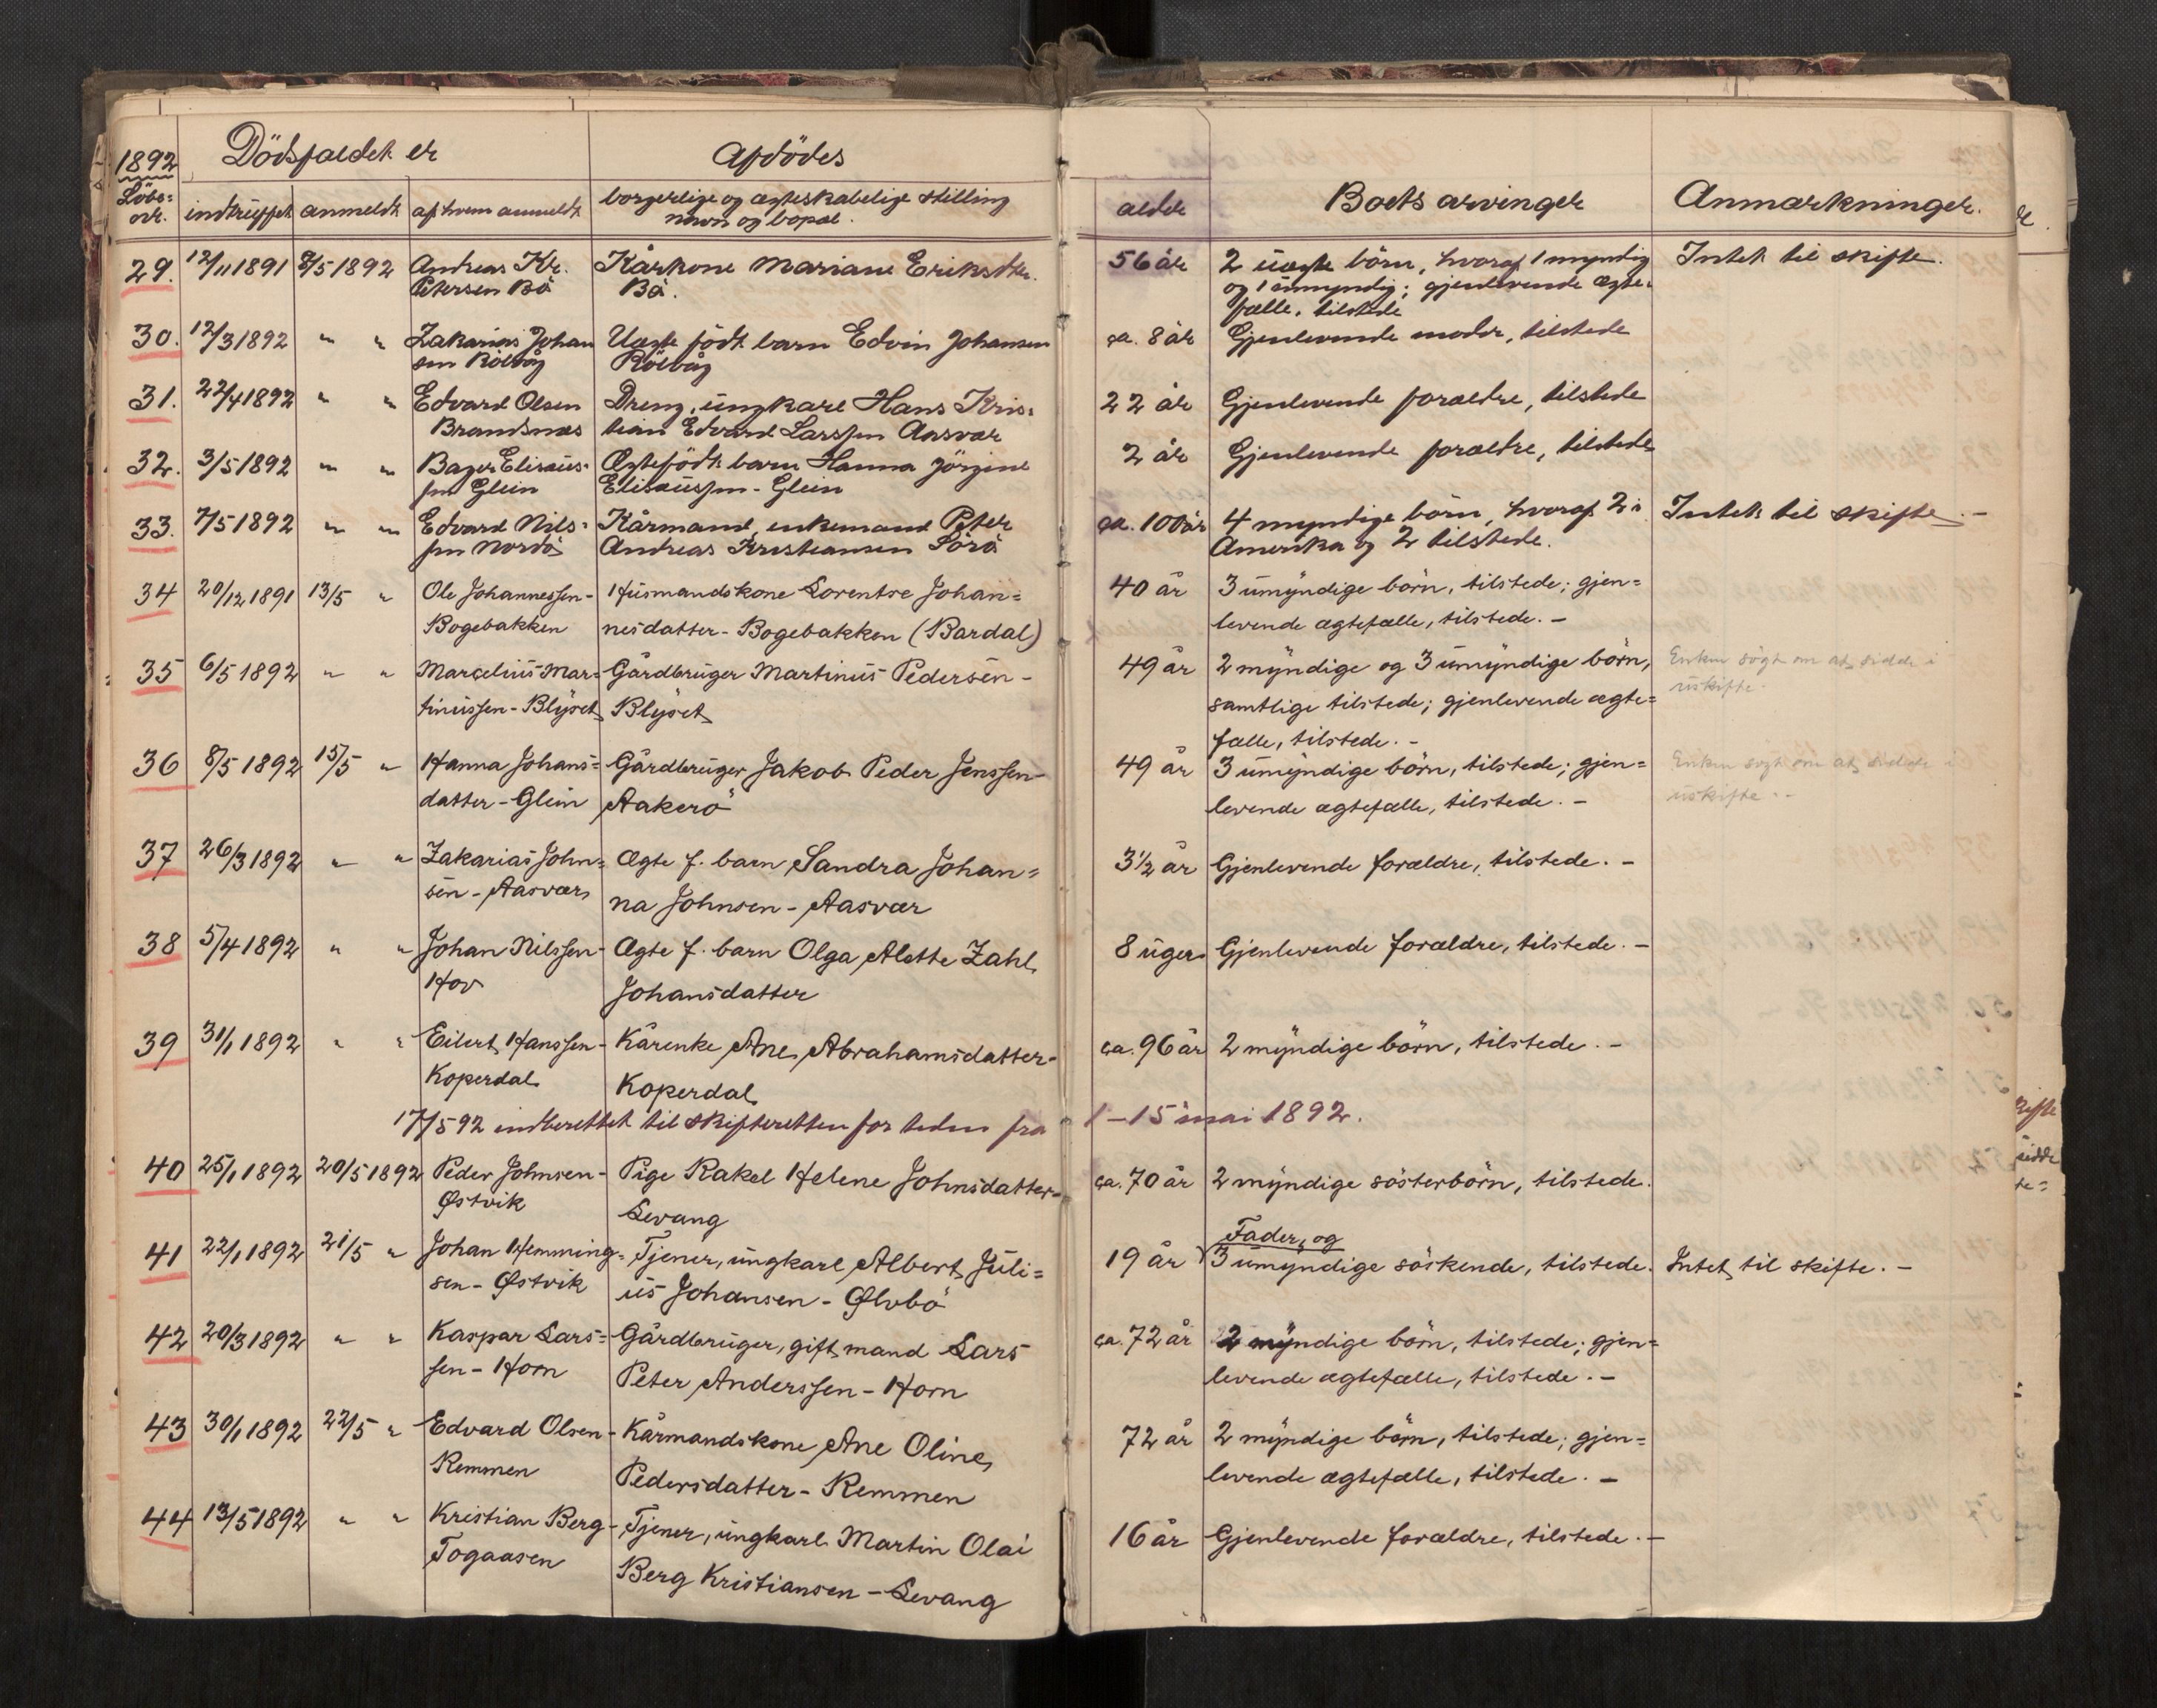 1892 Dödsfaldet er Afdödes
Löbe= indtruffet anmeldt af hvem anmeldt borgerlige og ægteskabelige stilling alder Boets arvinger Anmærkninger.
nr. navn og bopæl.
29. 12/11 1891 8/5 1892 Andreas Kr. Kårkone Mariane Eriksdtr. 56 år 2 uægte börn, hvoraf 1 myndig Intet til skifte.
Petersen Bö Bö. og 1 umyndig; gjenlevende ægte=
fælle, tilstede
30. 12/3 1892 " " Zakarias Johan Uægte födt barn Edvin Johansen ca. 8 år Gjenlevende moder, tilstede
sen Rölvåg Rölvåg
31. 22/4 1892 " " Edvard Olsen Dreng, ungkarl Hans Kris= 22 år Gjenlevende forældre, tilstede
Brandsnæs tian Edvard Larssen Aasvær
32. 3/5 1892 " " Elisæus= Ægtefödt barn Hanna Jörgine 2 år Gjenlevende forældre, tilstede
sen Glein Elisæussen - Glein
33. 7/5 1892 " " Edvard Nils= Kårmand, enkemand Peter ca. 100 år 4 myndige börn, hvoraf 2 i Intet til skifte. -
sen Nordö Andreas Kristiansen Sörö Amerika og 2 tilstede.
34 20/12 1891 13/5 " Ole Johannessen - Husmandskone Lorentse Johan= 40 år 3 umyndige börn, tilstede; gjen=
Bogebakken nesdatter - Bogebakken (Bardal) levende ægtefælle, tilstede. -
35 6/5 1892 " " Marcelius Mar= Gårdbruger Martinus Pedersen - 49 år 2 myndige og 3 umyndige börn, Enken sögt om at sidde i
tinussen - Blyset Blyset samtlige tilstede; gjenlevende ægte= uskifte.
fælle, tilstede. -
36 8/5 1892 15/5 " Hanna Johans= Gårdbruger Jakob Peder Jenssen - 49 år 3 umyndige börn, tilstede; gjen= Enken sögt om at sidde i
datter - Glein Aakerö levende ægtefælle, tilstede. - uskifte. -
37 26/3 1892 " " Zakarias John= Ægte f. barn Sandra Johan= 3½ år Gjenlevende forældre, tilstede. -
sen - Aasvær na Johnsen - Aasvær
38 5/4 1892 " " Johan Nilssen - Ægte f. barn Olga Alette Zahl 8 uger Gjenlevende forældre, tilstede. -
Hov Johansdatter
39 31/1 1892 " " Eilert Hanssen - Kårenke Ane Abrahamsdatter - ca. 96 år 2 myndige börn, tilstede. -
Koperdal Koperdal
17/5 92 indberettet til skifteretten for tiden fra 1 - 15 mai 1892.
40 25/1 1892 20/5 1892 Peder Johnsen - Pige Rakel Helene Johnsdatter - ca. 70 år 2 myndige sösterbörn, tilstede.
Østvik Levang
Fader, og
41 22/1 1892 21/5 " Johan Hemming= Tjener, ungkarl Albert Juli= 19 år 3 umyndige söskende, tilstede. Intet til skifte. -
sen - Østvik us Johansen - Ølvbö
42 20/3 1892 " " Kaspar Lars= Gårdbruger, gift mand Lars ca. 72 år 2 myndige börn, tilstede; gjen=
sen - Horn Peter Anderssen - Horn levende ægtefælle, tilstede. -
43 30/1 1892 22/5 " Edvard Olsen - Kårmandskone Ane Oline 72 år 2 myndige börn, tilstede; gjen=
Remmen Pedersdatter - Remmen levende ægtefælle, tilstede. -
44 13/5 1892 " " Kristian Berg - Tjener, ungkarl Martin Olai 16 år Gjenlevende forældre, tilstede. -
Togaasen Berg Kristiansen - Levang